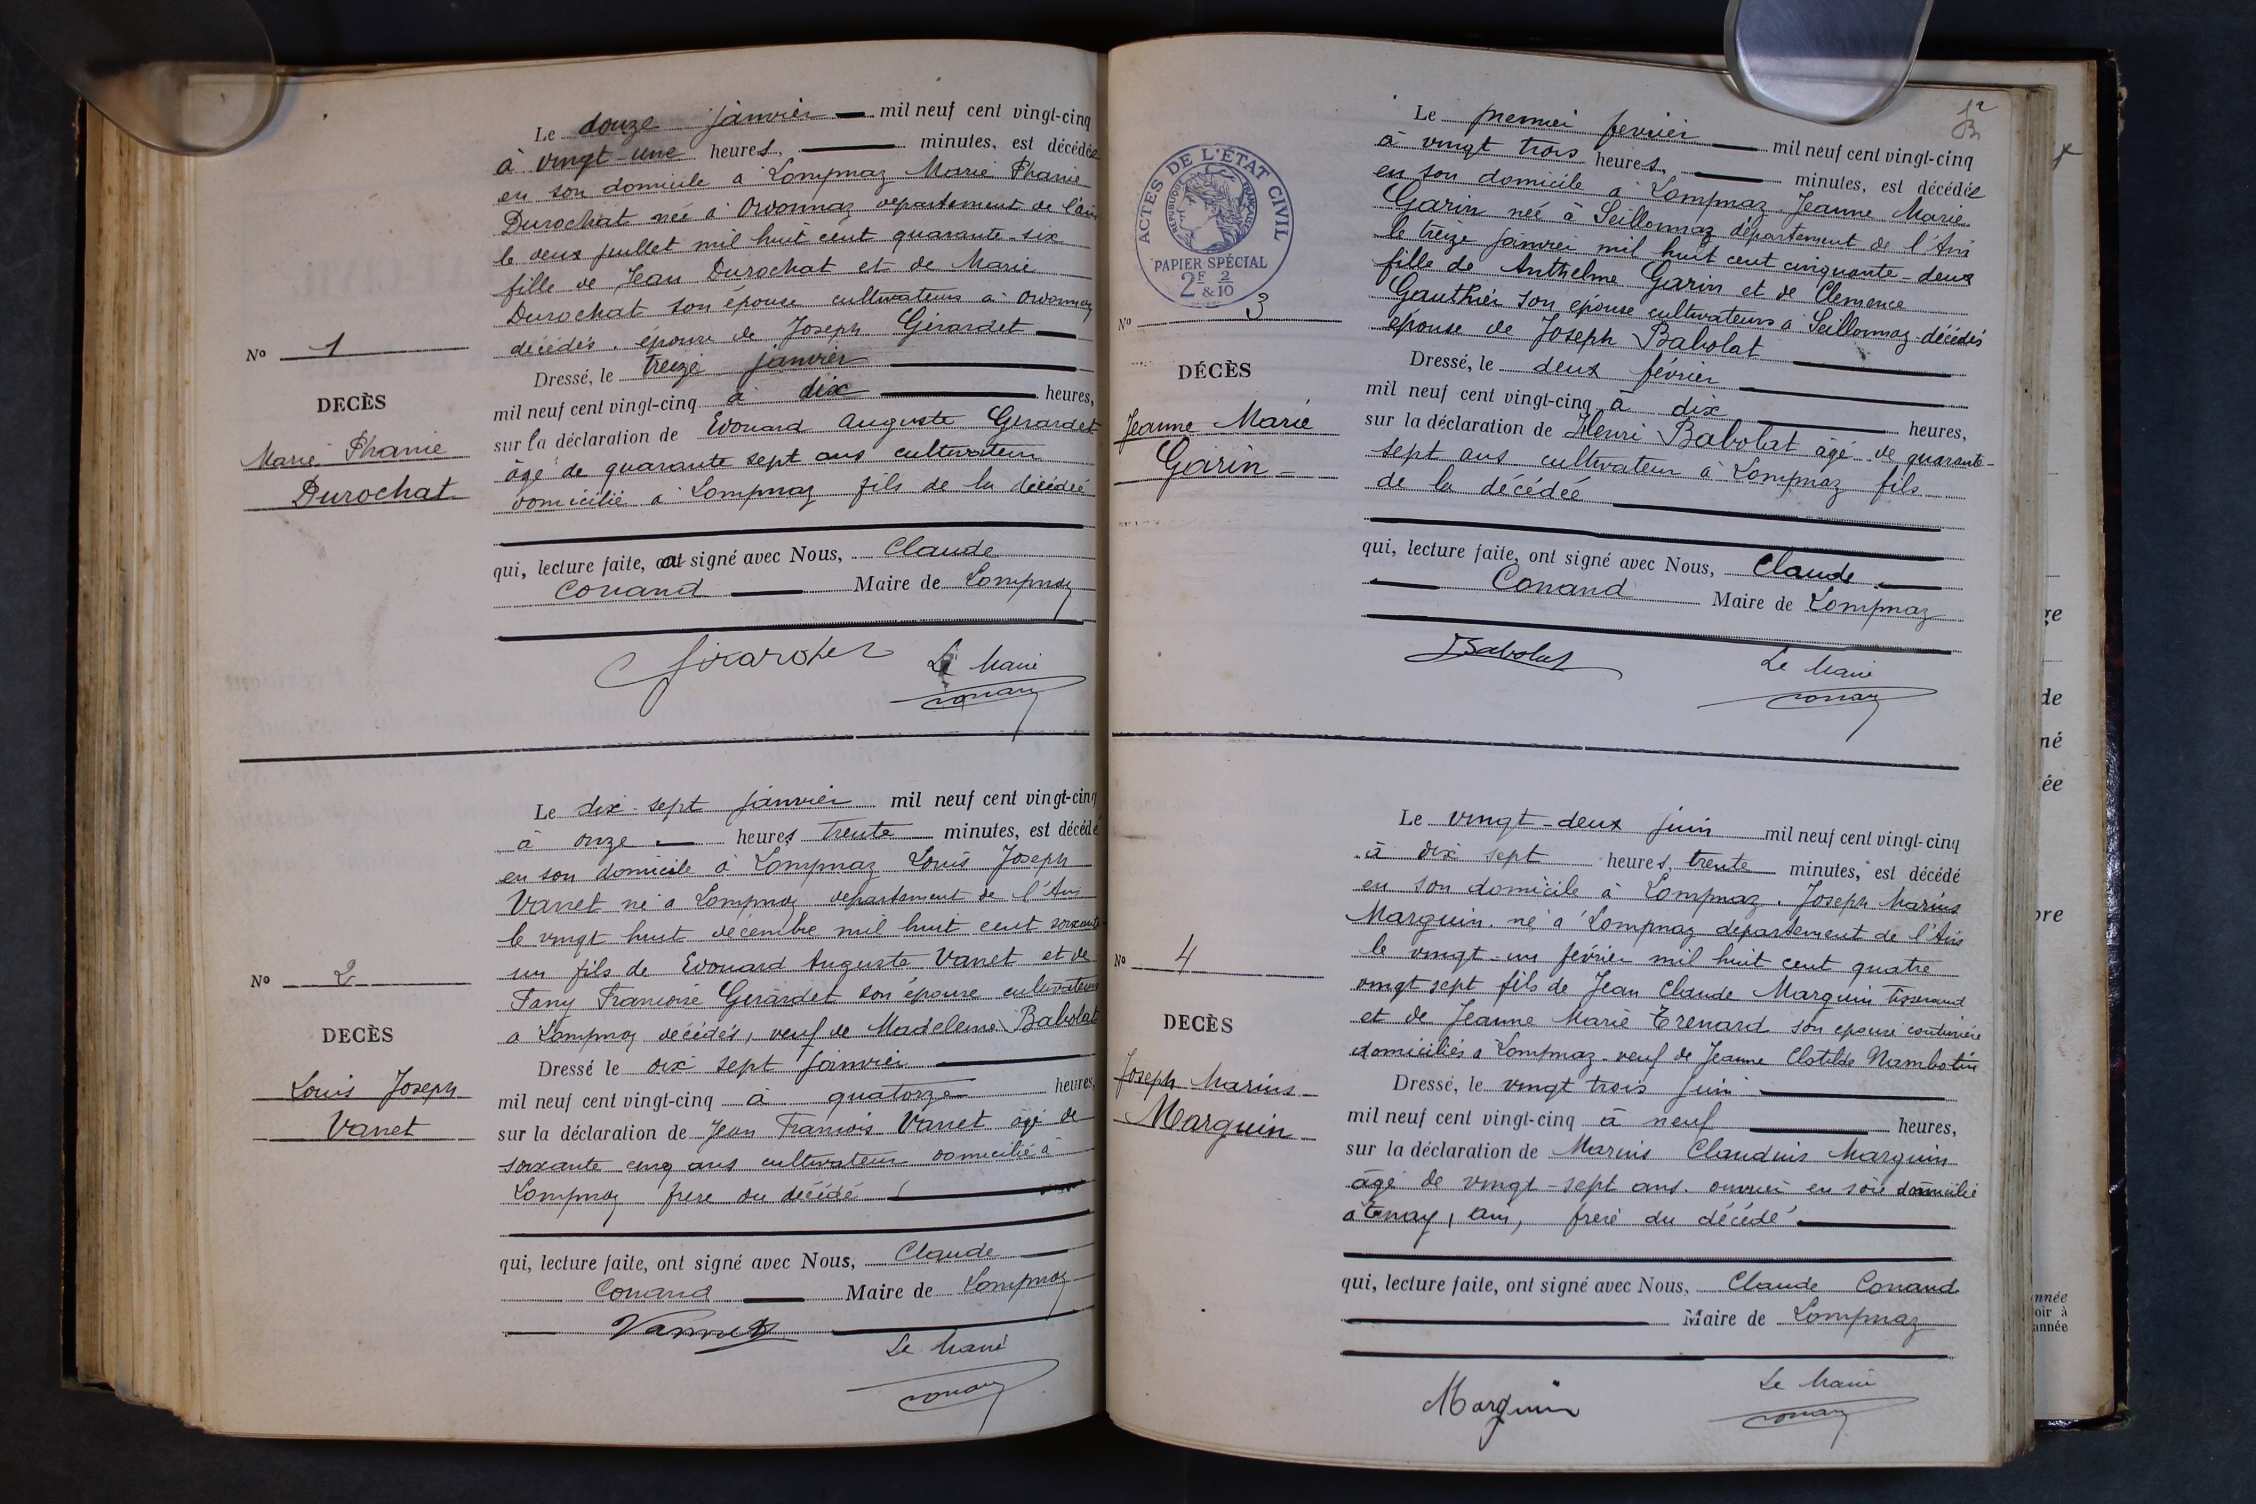 Le douze janvier mil neuf cent vingt-cinq
à vingt-une heures, minutes, est décédée
en son domicile a Lompnaz Marie Phanie
Durochat née à Ordonnaz departement de l'ain
le deux juillet mil huit cent quarante-six
fille de Jean Durochat et de Marie
Durochat son épouse cultivateurs à Ordonnaz
décédés. épouse de Joseph Gérardet
Dressé, le treize janvier
mil neuf cent vingt-cinq à dix heures,
sur la déclaration de Edouard Auguste Gérardet
âgé de quarante sept ans cultivateur
domicilié a Lompnaz fils de la décédée
qui, lecture faite, a signé avec Nous, Claude
Conand Maire de Lompnaz
Girardet Le Maire
Conan
No 1
DECÈS
Marie Phanie
Durochat
Le dix-sept janvier mil neuf cent vingt-cinq
à onze heures trente minutes, est décédé
en son domicile à Lompnaz Louis Joseph
Vanet né a Lompnaz departement de l'Ain
le vingt huit décembre mil huit cent soixante
un fils de Edouard Auguste Vanet et de
Fany Francoise Gerardet son épouse cultivateurs
a Lompnaz décédés, veuf de Madeleine Babolat
Dressé le dix sept janvier
mil neuf cent vingt-cinq à quatorze heures,
sur la déclaration de Jean Francois Vanet âgé de
soixante cinq ans cultivateur domicilié à
Lompnaz frere du décédé
qui, lecture faite, ont signé avec Nous, Claude
Conand Maire de Lompnaz
Vannet
Le Maire
Conan
No 2
DECÈS
Louis Joseph
Vanet
Le premier fevrier mil neuf cent vingt-cinq
à vingt trois heures, minutes, est décédée
en son domicile a Lompnaz Jeanne Marie
Garin née à Seillonnaz département de l'Ain
le treize janvier mil huit cent cinquante-deux
fille de Anthelme Garin et de Clemence
Gauthier son epouse cultivateurs à Seillonnaz décédés
épouse de Joseph Babolat
Dressé, le deux février
mil neuf cent vingt-cinq à dix heures,
sur la déclaration de Henri Babolat âgé de quarante-
sept ans cultivateur à Lompnaz fils
de la décédée
qui, lecture faite, ont signé avec Nous, Claude
Conand Maire de Lompnaz
Babolat Le Maire
Conan
ACTES DE L'ÉTAT CIVIL
RÉPUBLIQUE FRANÇAISE
PAPIER SPÉCIAL
2F & 2/10
No 3
DÉCÈS
Jeanne Marie
Garin
Le vingt-deux juin mil neuf cent vingt-cinq
à dix sept heures, trente minutes, est décédé
en son domicile à Lompnaz. Joseph Marius
Marguin. né a Lompnaz département de l'Ain
le vingt-un février mil huit cent quatre
vingt sept fils de Jean Claude Marguin tisserand
et de Jeanne Marie Trenard son epouse couturière
domiciliés a Lompnaz. veuf de Jeanne Clotilde Nambotin
Dressé, le vingt trois juin
mil neuf cent vingt-cinq à neuf heures,
sur la déclaration de Marius Claudius Marguin
âgé de vingt-sept ans. ouvrier en soie domicilié
a tenay, ain, frere du décédé
qui, lecture faite, ont signé avec Nous, Claude Conand
Maire de Lompnaz
Marguin
Le Maire
Conan
No 4
DECÈS
Joseph Marius
Marguin
ge
de
né
ée
bre
nnée
oir à
année